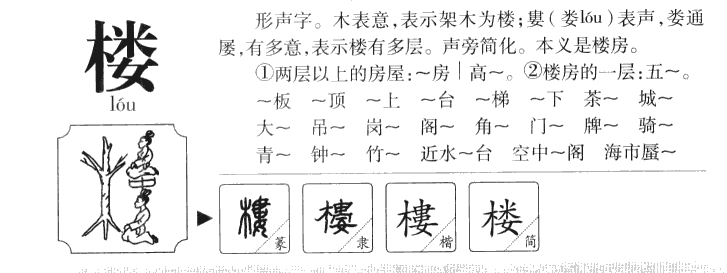 楼
lóu
形声字。木表意,表示架木为楼;婁(娄lóu)表声,娄通
屡,有多意,表示楼有多层。声旁简化。本义是楼房。
①两层以上的房屋:～房｜高～。②楼房的一层:五～。
～板 ～顶 ～上 ～台 ～梯 ～下 茶～ 城～
大～ 吊～ 岗～ 阁～ 角～ 门～ 牌～ 骑～
青～ 钟～ 竹～ 近水～台 空中～阁 海市蜃～
樓 篆 樓 隶 樓 楷 楼 简